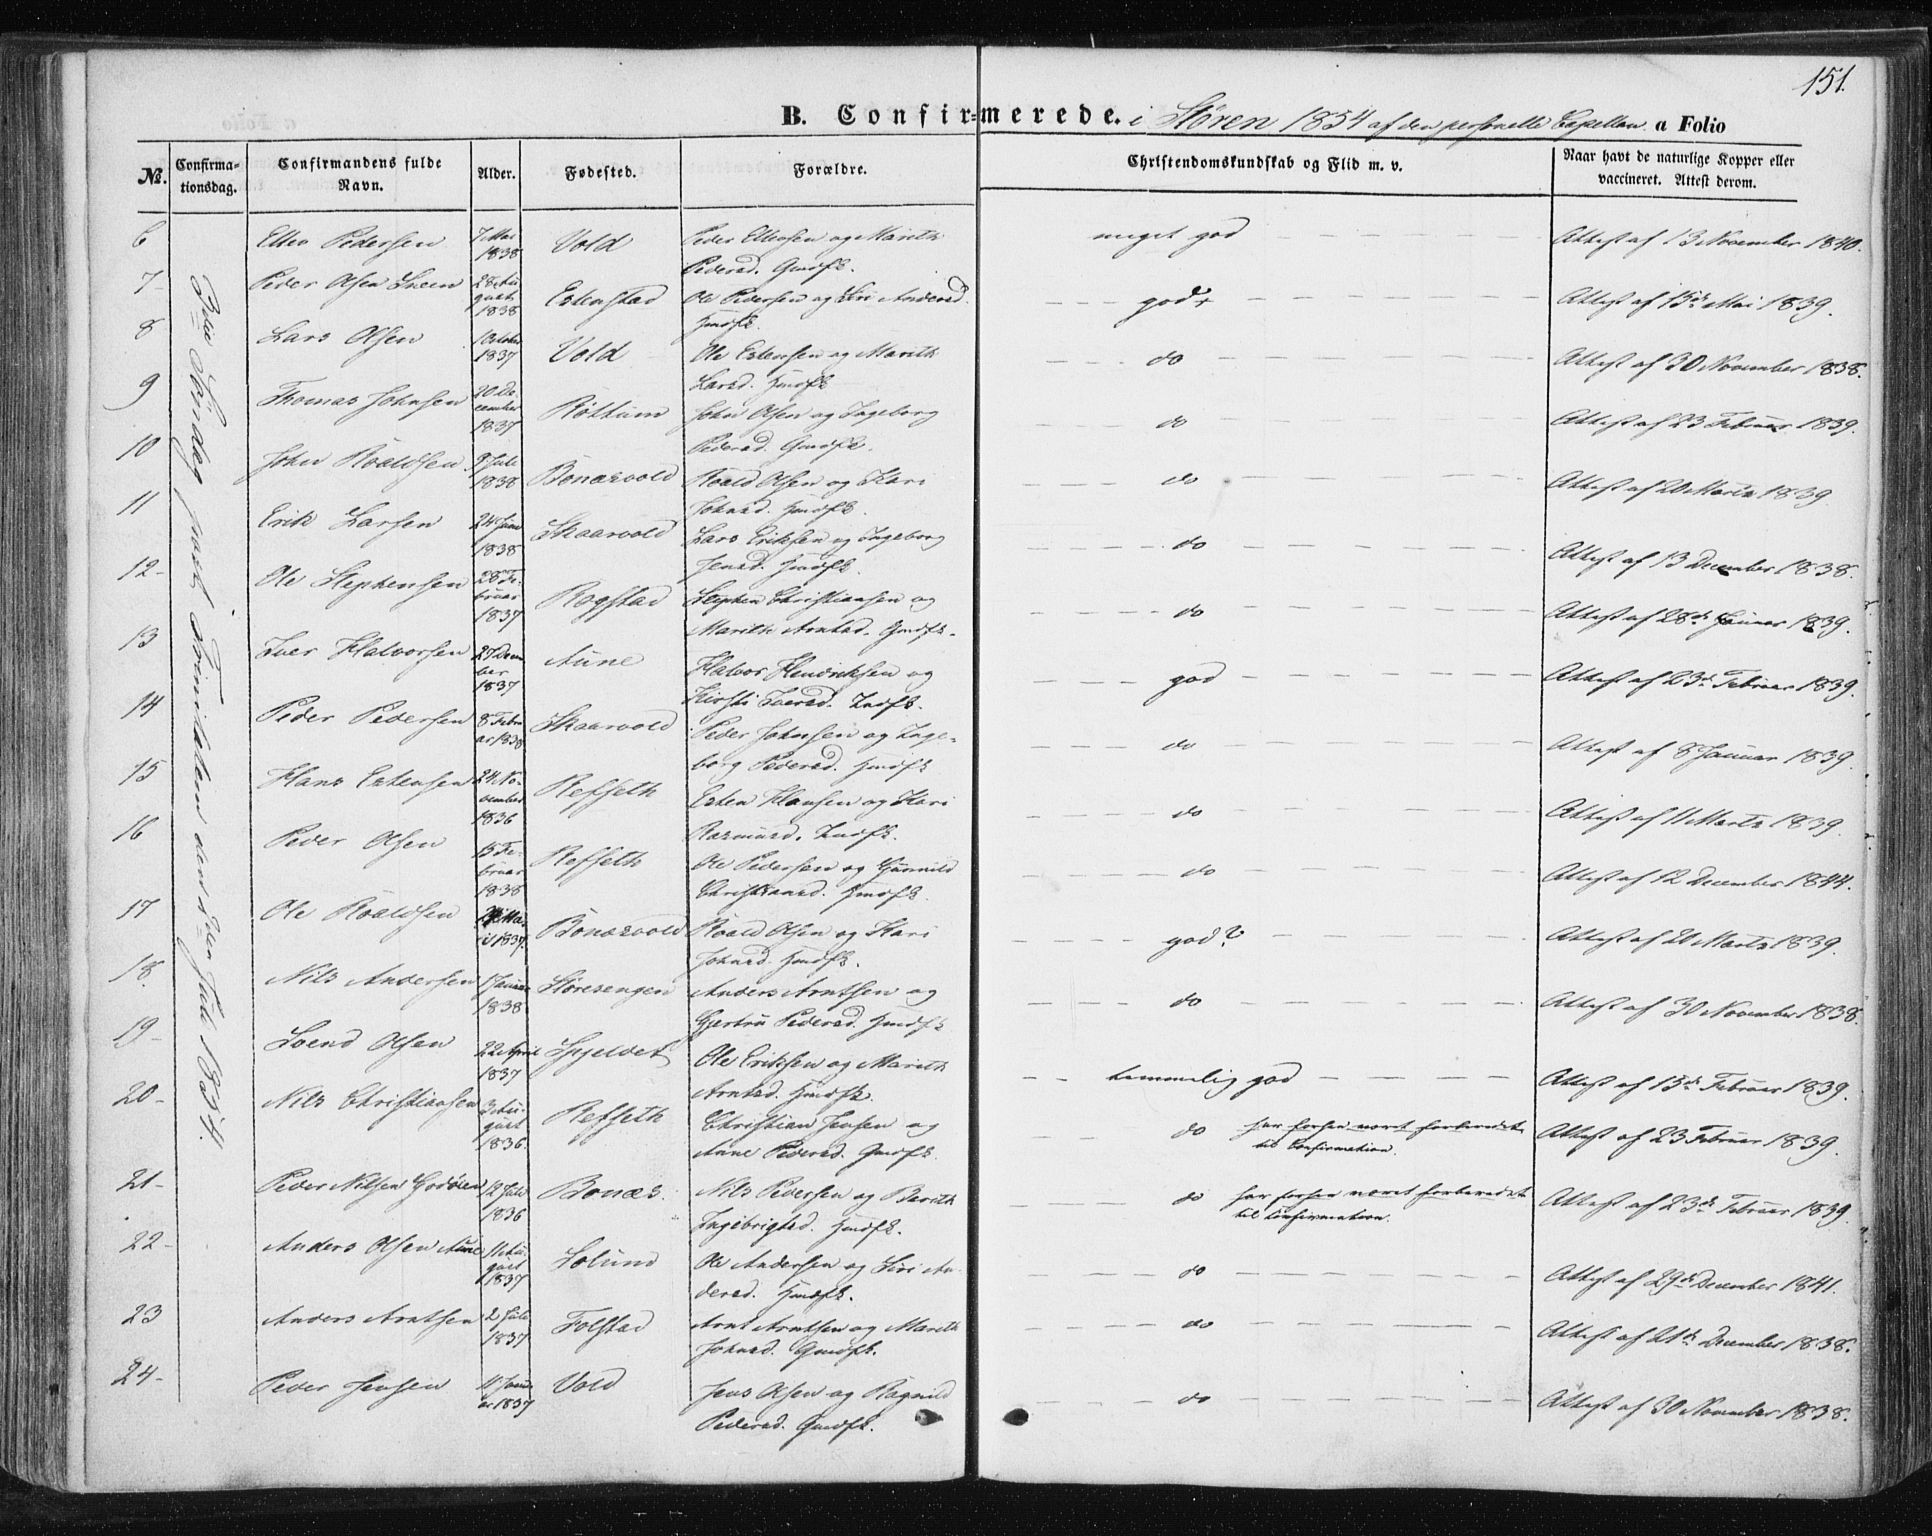 151.
B. Confirmerede. i Støren 1854 af den personelle Capellan a Folio
No. Confirmationsdag. Confirmandens fulde Navn. Alder. Fødested. Forældre. Christendomskundskab og Flid m. v. Naar havt de naturlige Kopper eller vaccineret. Attest derom.
Søndag post Trinitatis den Juli 1854.
6 Ellev Pedersen 7 Mai 1838 Vold Peder Ellevsen og Marith Pedersd. Gmdfk. meget god Attest af 13 November 1840.
7- Peder Olsen Sneen 28 August 1838 Estenstad Ole Pedersen og Siri Andersd. Hmdfk. god+ Attest af 15de Mai 1839.
8 Lars Olsen 1 October 1837 Vold Ole Estensen og Marith Larsd. Hmdfk do Attest af 30 November 1838.
9 Thomas Johnsen 20 December 1837 Røttum John Olsen og Ingeborg Pedersd. Gmdfk. do Attest af 23 Februar 1839.
10 John Roaldsen 9 Juli 1838 Bonæsvold Roald Olsen og Kari Johnsd. Hmdfk. do Attest af 20 Marts 1839
11 Erik Larsen 24 Juni 1838 Skaarvold Lars Eriksen og Ingeborg Jensd. Hmdfk. do Attest af 13 December 1838.
12- Ole Stephensen 28 Februar 1837 Rogstad Stephen Christiansen og Marith Arntsd. Gmdfk. do Attest af 28de Januar 1839.
13 Iver Halvorsen 27 December 1837 Aune Halvor Hendriksen og Kirsti Iversd. Indfk. god Attest af 23de Februar 1839.
14 Peder Pedersen 8 Februar 1838 Skaarvold Peder Johnsen og Ingeborg Pedersd. Hmdfk do Attest af 8 Januar 1839.
15 Hans Estensen 24 November 1836 Refseth Esten Hansen og Kari Rasmusd. Indfk. do Attest af 11 Marts 1839.
16 Peder Olsen 15 Februar 1838 Refseth Ole Pedersen og Gunnild Christiansd. Hmdfk. do Attest af 12 December 1844.
17 Ole Roaldsen 1837. Bonæsvold Roald Olsen og Kari Johnsd. Hmdfk. god? Attest af 20 Marts 1839
18. Nils Andersen 1 Januar 1838 Størensengen Anders Arntsen og Gjertru Pedersd. Hmdfk do Attest af 30 November 1838.
19- Svend Olsen 22 April 1837 Spjeldet Ole Eriksen og Marith Arntsd. Hmdfk. temmelig god Attest af 15de Februar 1839.
20- Nils Christiansen 3 August 1836 Refseth Christian Jensen og Anne Pedersd. Gmdfk. do har forhen været forberedet til Confirmation. Attest af 23 Februar 1839.
21- Peder Nilsen Godøen 12 Juli 1836 Bonæs. Nils Pedersen og Berith Ingebrigtsd. Hmdfk. do har forhen været forberedet til Confirmation. Attest af 23de Februar 1839
22- Anders Olsen Aune 11 August 1837 Solund Ole Andersen og Siri Andersd. Hmdfk. do Attest af 29de December 1841.
23 Anders Arntsen 2 Juli 1837 Folstad Arnt Arntsen og Marith Johnsd. Gmdfk. do Attest af 21de December 1838.
24- Peder Jensen 11 Januar 1837 Vold Jens Olsen og Ragnild Pedersd. Gmdfk. do Attest af 30 November 1838.